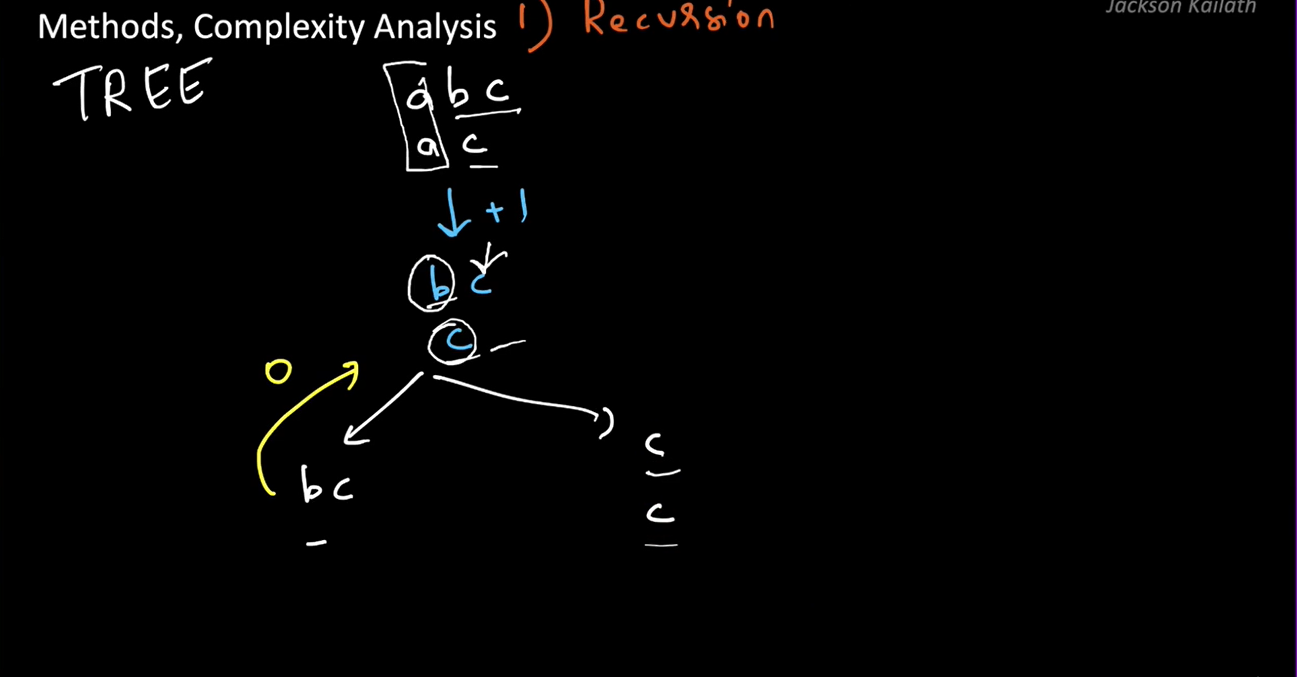 Methods, Complexity Analysis 1) Recursion
Jackson Kailath
TREE
a b c
a c
↓ + 1
b c
c _
0
b c
_
c
c